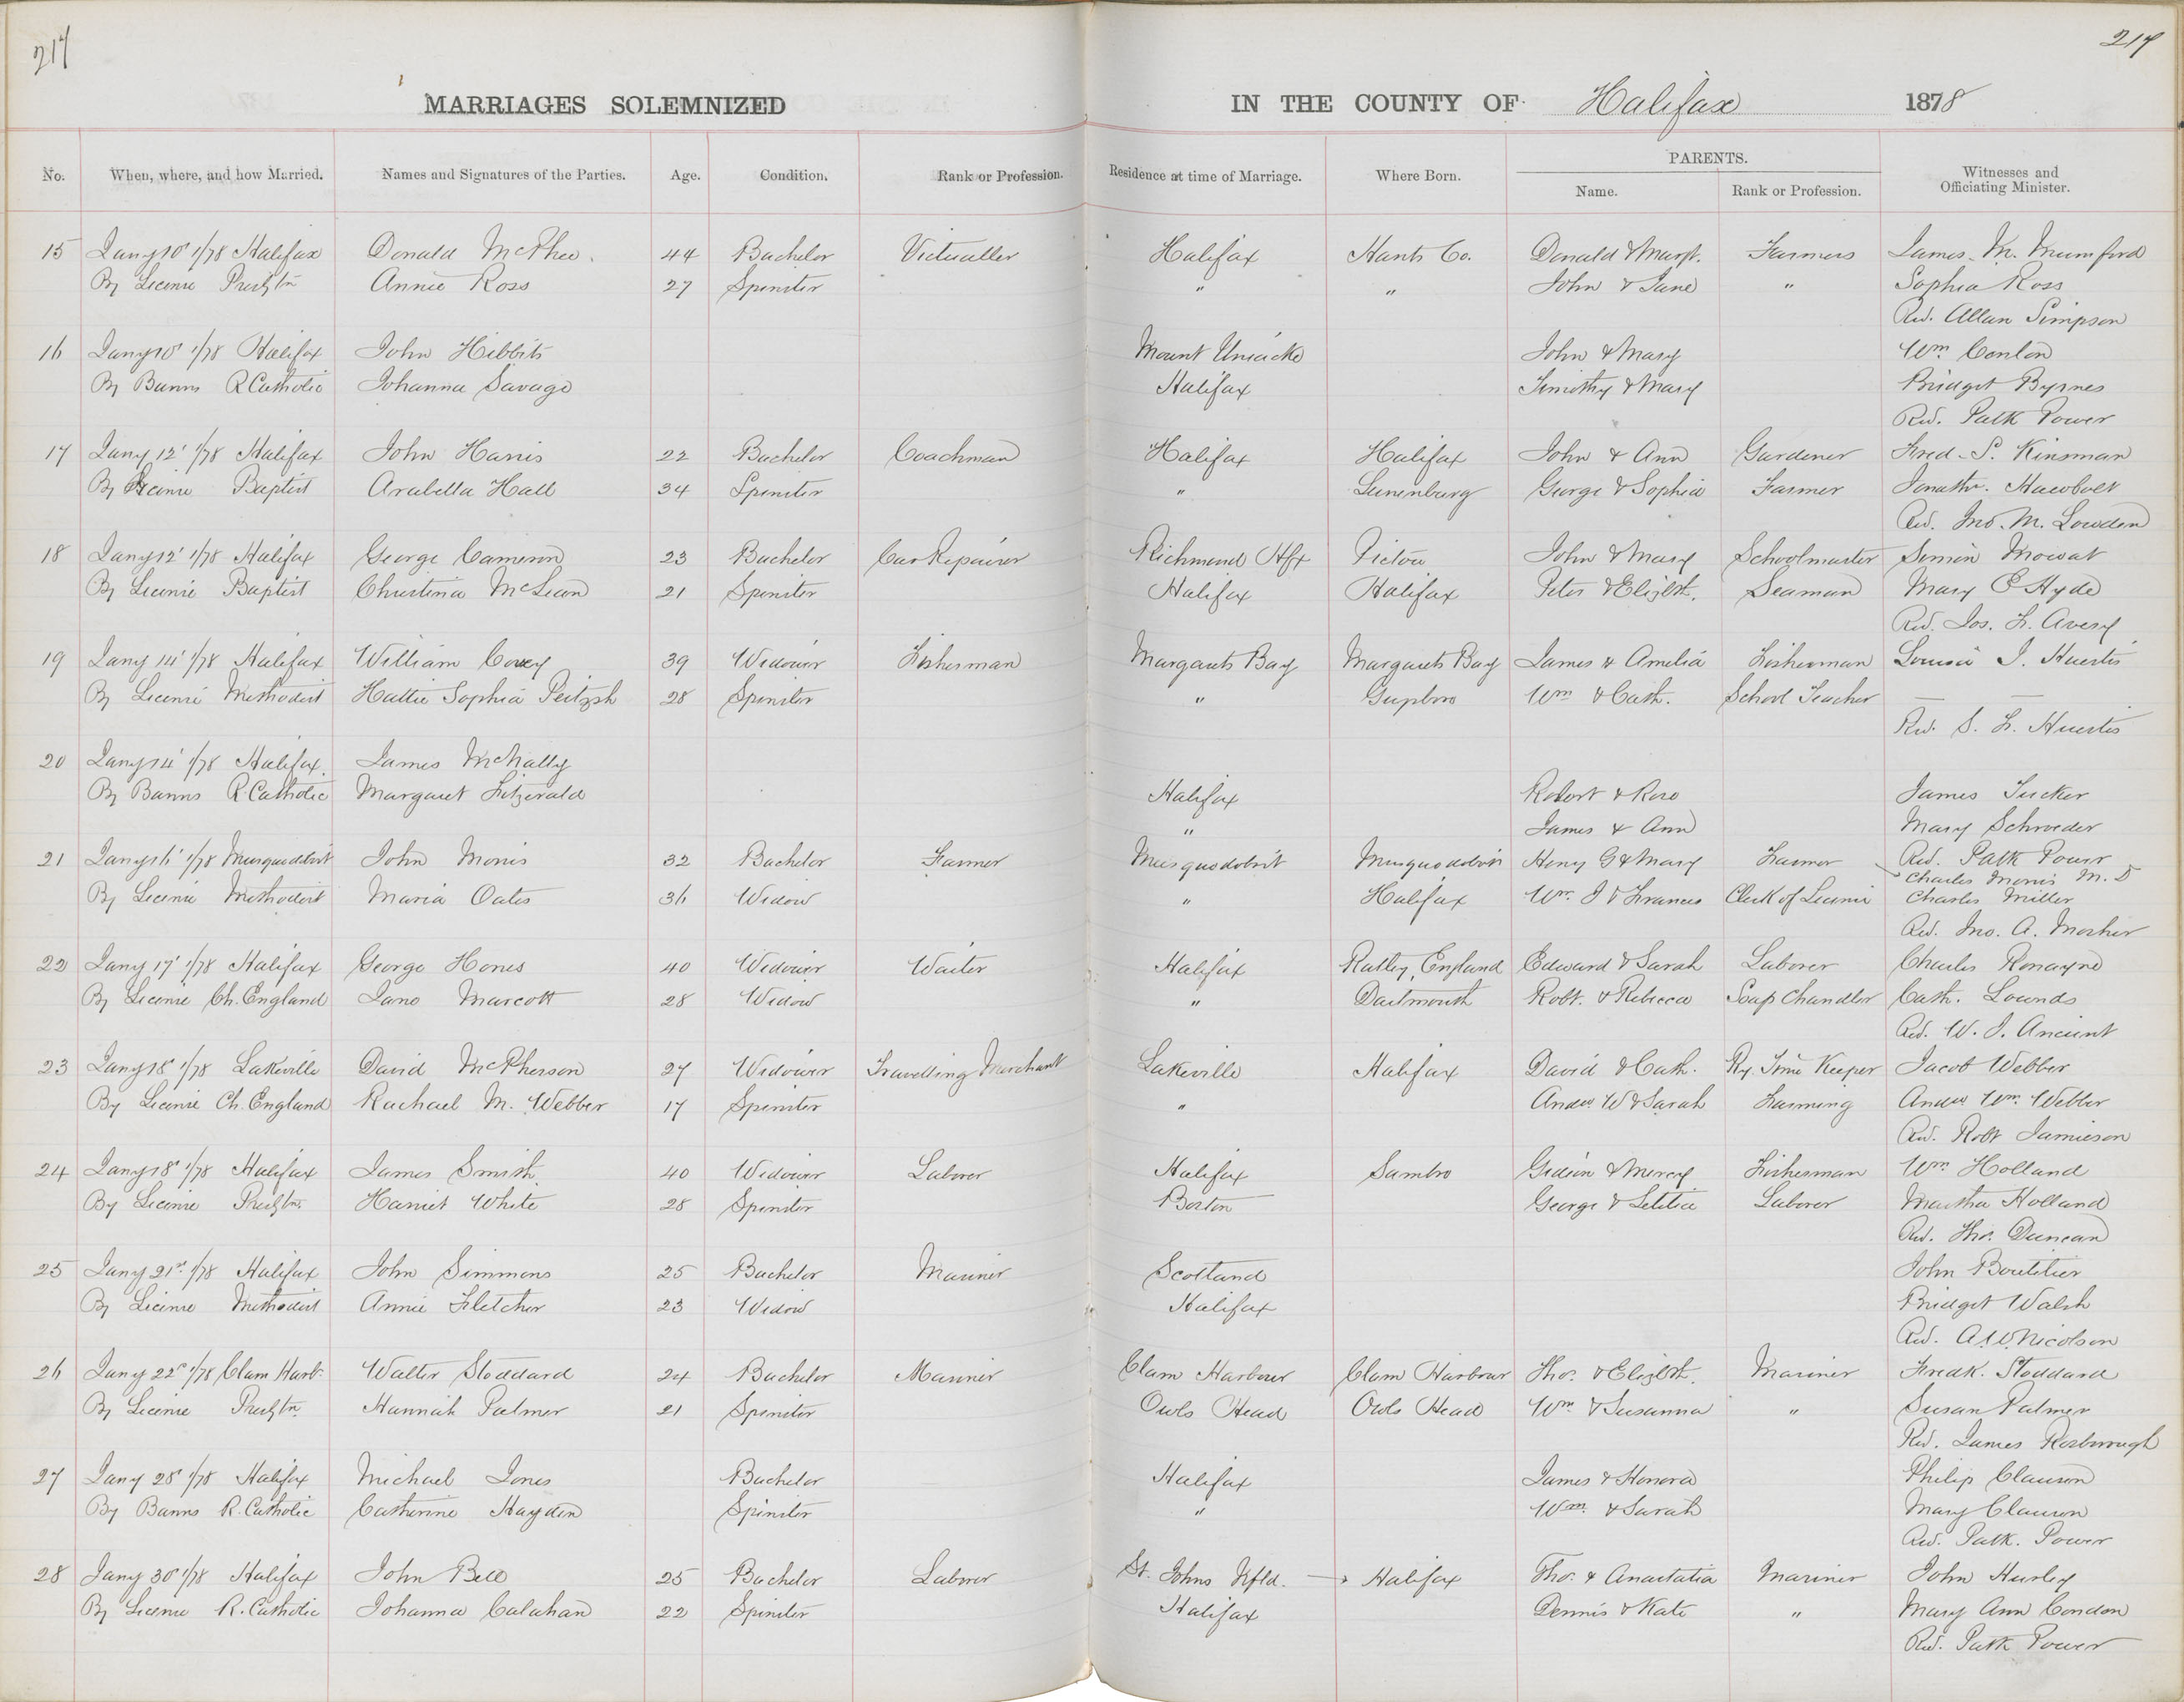 217
217
MARRIAGES SOLEMNIZED IN THE COUNTY OF Halifax 1878
No. When, where, and how Married. Names and Signatures of the Parties. Age. Condition. Rank or Profession. Residence at time of Marriage. Where Born. PARENTS. Name. Rank or Profession. Witnesses and Officiating Minister.
15 Jany 10' 1/78 Halifax Donald McPhee. 44 Bachelor Victualler Halifax Hants Co. Donald & Margt. Farmers James M. Mumford
By License Presbytn Annie Ross 27 Spinster " " John & Jane " Sophia Ross
Rev. Allan Simpson
16 Jany 10' 1/78 Halifax John Hibbits Mount Uniacke John & Mary Wm. Conlon
By Banns R Catholic Johanna Savage Halifax Timothy & Mary Bridget Byrnes
Rev. Patk Power
17 Jany 12' 1/78 Halifax John Harris 22 Bachelor Coachman Halifax Halifax John & Ann Gardener Fred. S. Kinsman
By License Baptist Arabella Hall 34 Spinster " Lunenburg George & Sophia Farmer Jonathn. Hawbolt
Rev. Jno. M. Lowden
18 Jany 12' 1/78 Halifax George Cameron 23 Bachelor Car Repairer Richmond Hfx Pictou John & Mary Schoolmaster Simon Mowat
By License Baptist Christina McLean 21 Spinster Halifax Halifax Peter & Elizbt. Seaman Mary E Hyde
Rev. Jos. F. Avery
19 Jany 14' 1/78 Halifax William Covey 39 Widower Fisherman Margarets Bay Margarets Bay James & Amelia Fisherman Louisa J. Huestis
By License Methodist Hattie Sophia Peitzsh 28 Spinster " Guysboro Wm & Cath. School Teacher — —
Rev. S. F. Huestis
20 Jany 14' 1/78 Halifax. James McNally
By Banns R. Catholic Margaret Fitzerald Halifax Robert & Rose James Tucker
" James & Ann Mary Schroeder
Rev. Patk Power
21 Jany 16' 1/78 Musquodobit John Morris 32 Bachelor Farmer Musquodobit Musquodobit Henry G & Mary Farmer Charles Morris M.D
By License Methodist Maria Oates 36 Widow " Halifax Wm. J & Frances Clerk of License Charles Miller
Rev. Jno. A. Mosher
22 Jany 17' 1/78 Halifax George Hones 40 Widower Waiter Halifax Ratley, England Edward & Sarah Laborer Charles Ronayne
By License Ch. England Jane Marcott 28 Widow " Dartmouth Robt. & Rebecca Soap Chandler Cath. Lownds
Rev. W. J. Ancient
23 Jany 18' 1/78 Lakeville David McPherson 27 Widower Travelling Merchant Lakeville Halifax David & Cath. Ry. Time Keeper Jacob Webber
By License Ch. England Rachael M. Webber 17 Spinster " Andw W & Sarah Farming Andw Wm. Webber
Rev. Robt Jamieson
24 Jany 18' 1/78 Halifax James Smith 40 Widower Laborer Halifax Sambro Gideon & Mercy Fisherman Wm. Holland
By License Presbytn. Harriet White 28 Spinster Boston George & Letitia Laborer Martha Holland
Rev. Thos. Duncan
25 Jany 21st 1/78 Halifax John Simmons 25 Bachelor Mariner Scotland John Boutilier
By License Methodist Annie Fletcher 23 Widow Halifax Bridget Walsh
Rev. A W Nicolson
26 Jany 22d 1/78 Clam Harb. Walter Stoddard 24 Bachelor Mariner Clam Harbour Clam Harbour Thos. & Elizbt. Mariner Fredk. Stoddard
By License Presbytn. Hannah Palmer 21 Spinster Owls Head Owls Head Wm. & Susanna " Susan Palmer
Rev. James Rosborough
27 Jany 28' 1/78 Halifax Michael Jones Bachelor Halifax James & Honora Philip Clauson
By Banns R. Catholic Catherine Hayden Spinster " Wm. & Sarah Mary Clauson
Rev. Patk. Power
28 Jany 30' 1/78 Halifax John Bell 25 Bachelor Laborer St. Johns Nfld. → Halifax Thos. & Anastatia Mariner John Hurley
By License R. Catholic Johanna Calahan 22 Spinster Halifax Dennis & Kate " Mary Ann Condon
Rev. Patk Power